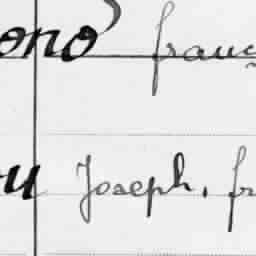 ono franç
u Joseph, fr